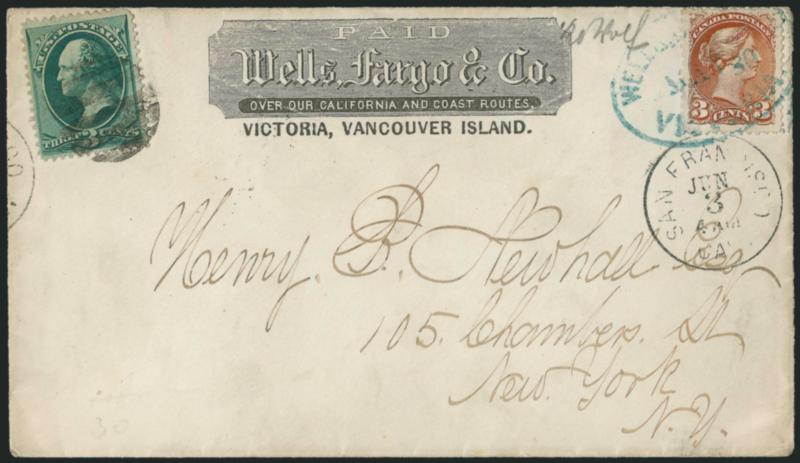 U.S. POSTAGE
THREE 3 CENTS
PAID
Wells, Fargo & Co.
OVER OUR CALIFORNIA AND COAST ROUTES.
VICTORIA, VANCOUVER ISLAND.
CANADA POSTAGE
3 CENTS 3
SAN FRANCISCO
JUN
3
CAL
Henry. B. Newhall Esq
105. Chambers. St
New. York
N.Y.
30